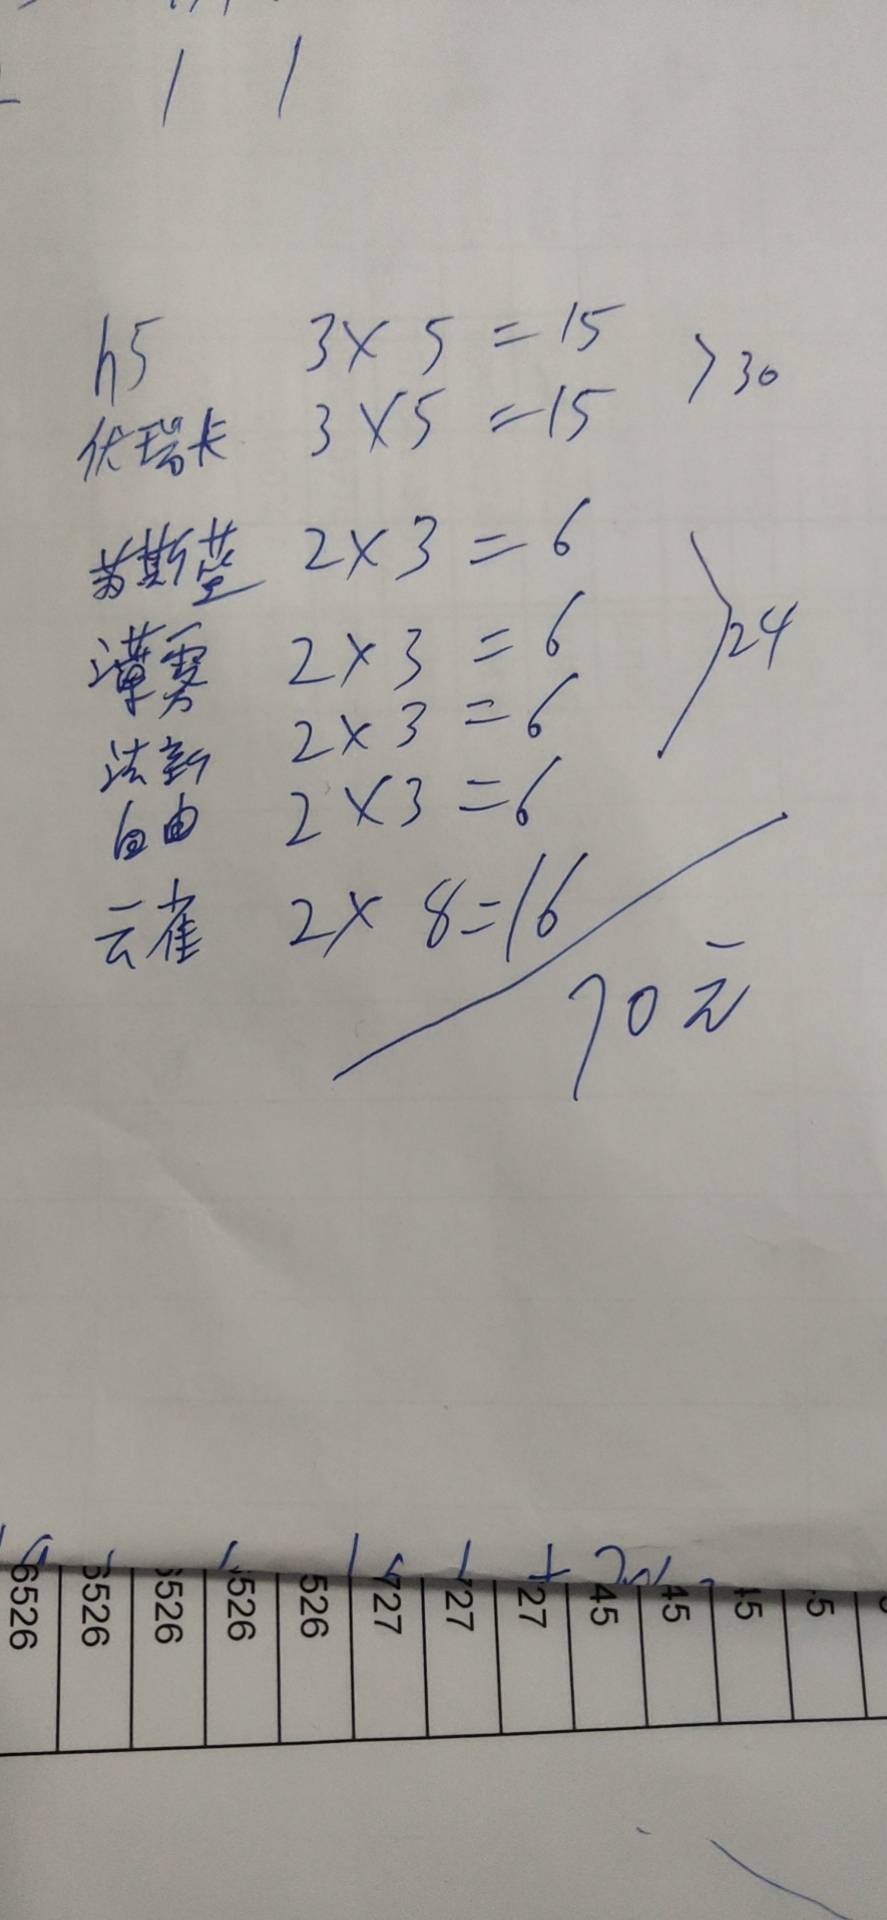 1 1
h5 3×5=15
伏瑞卡 3×5=15 >30
苏斯莹 2×3=6
薄雾 2×3=6 24
法新 2×3=6
自由 2×3=6
云雀 2×8=16
70元
6526 6526 5526 526 526 727 727 27 45 45 45 5